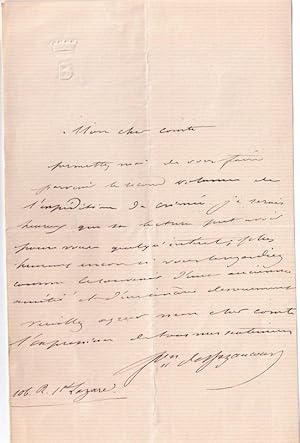 Mon cher comte
permettez moi de vous faire
parvenir le second volume de
l'expédition de crimée, je serais
heureux que sa lecture put avoir
pour vous quelqu'intérêt, plus
heureux encore si vous le gardiez
comme le souvenir d'une ancienne
amitié et d'un sincère dévouement
veuillez agréer mon cher comte
l'expression de tous mes sentiments
Bon de Bazancourt
106. R. St Lazare